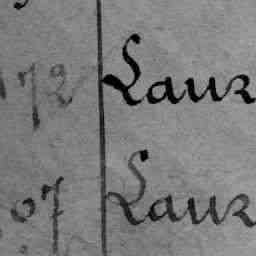 172 Lauz
07 Lauz